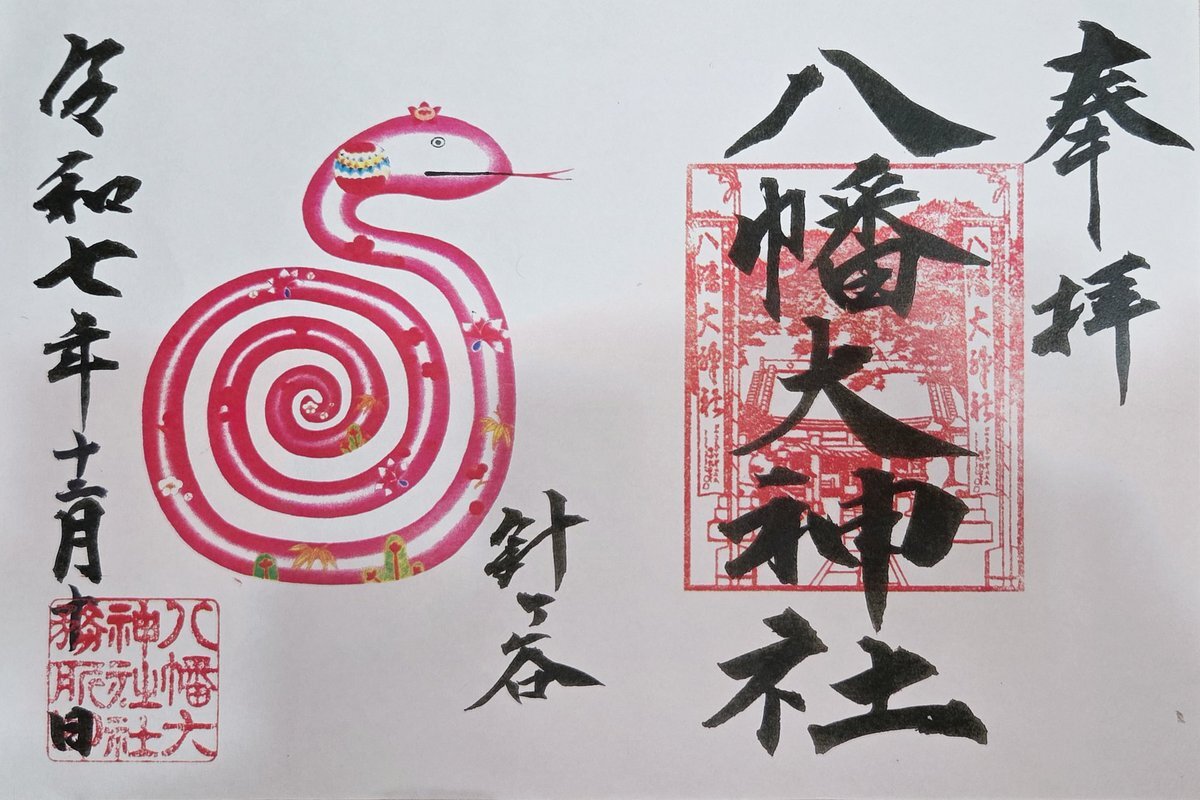 奉拝
八幡大神社
八幡大神社
八幡大神社
針ヶ谷
令和七年十二月十日
八幡大
神社社
務所印